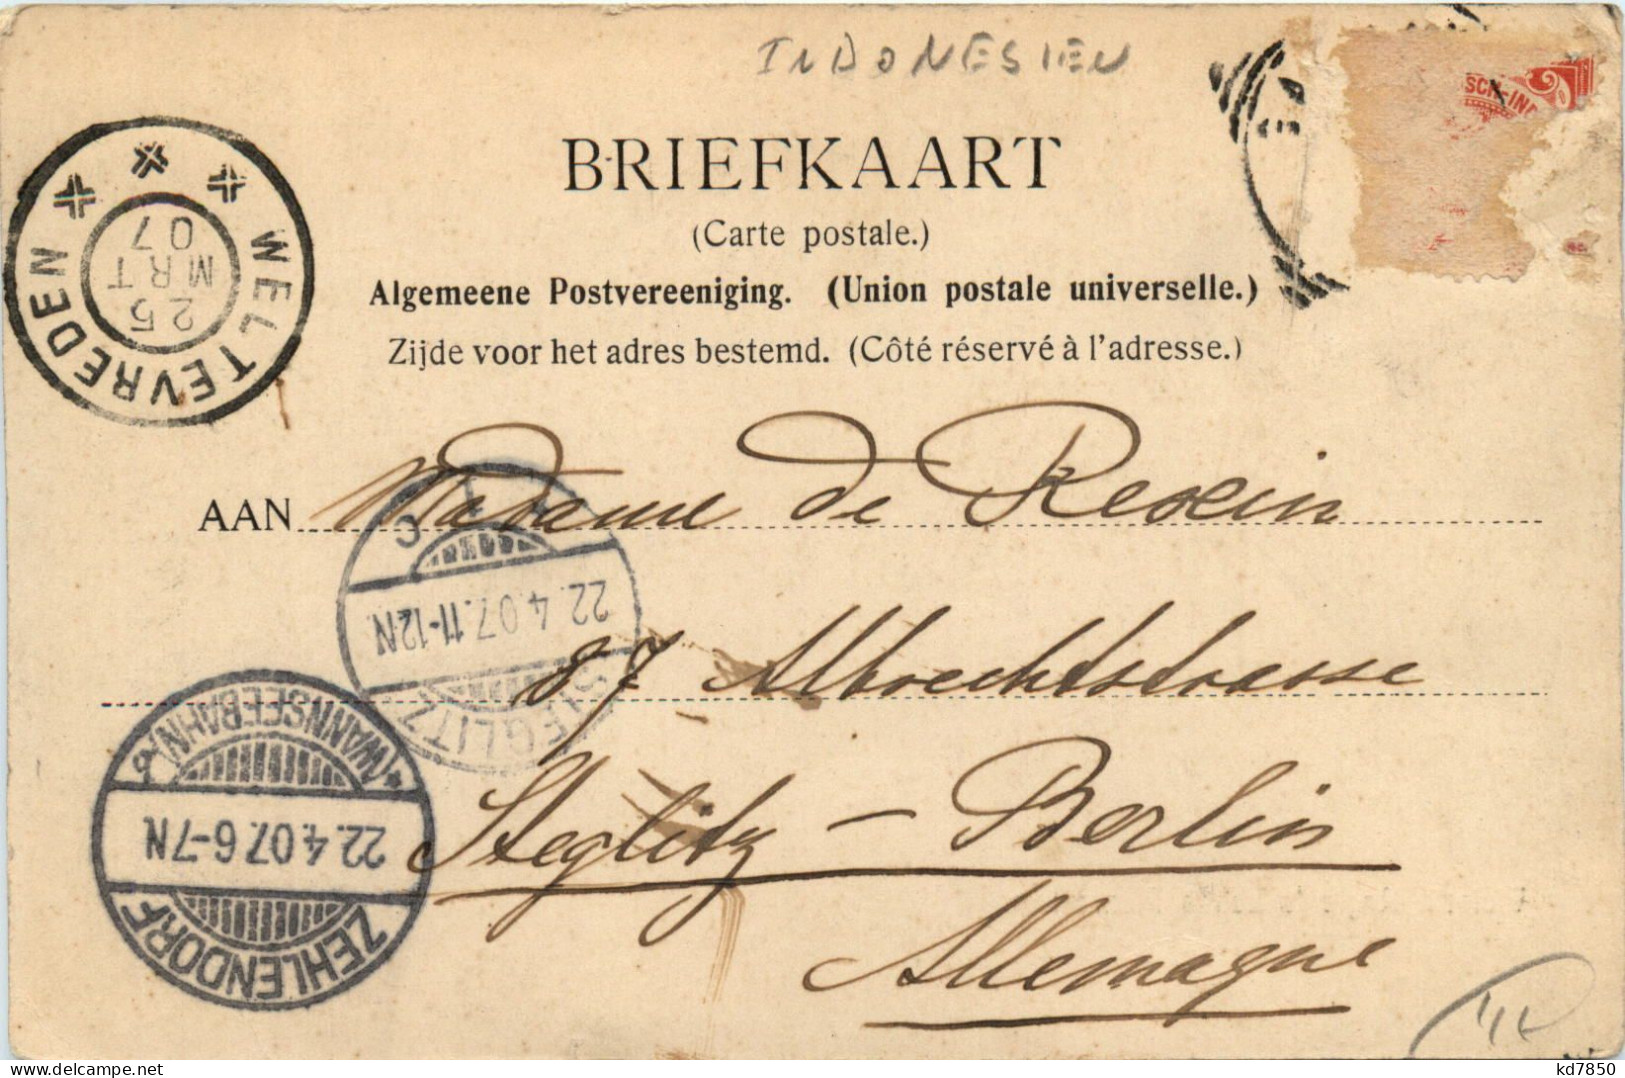 INDONESIEN
SCH-IND
BRIEFKAART
(Carte postale.)
Algemeene Postvereeniging. (Union postale universelle.)
Zijde voor het adres bestemd. (Côté réservé à l'adresse.)
WELTEVREDEN
25
MRT
07
AAN Madame de Rexin
87 Albrechtstrasse
Steglitz - Berlin
Allemagne
STEGLITZ
22.4.07.11-12N
ZEHLENDORF
22.4.07.6-7N
(WANNSEEBAHN)
delcampe.net
kd7850